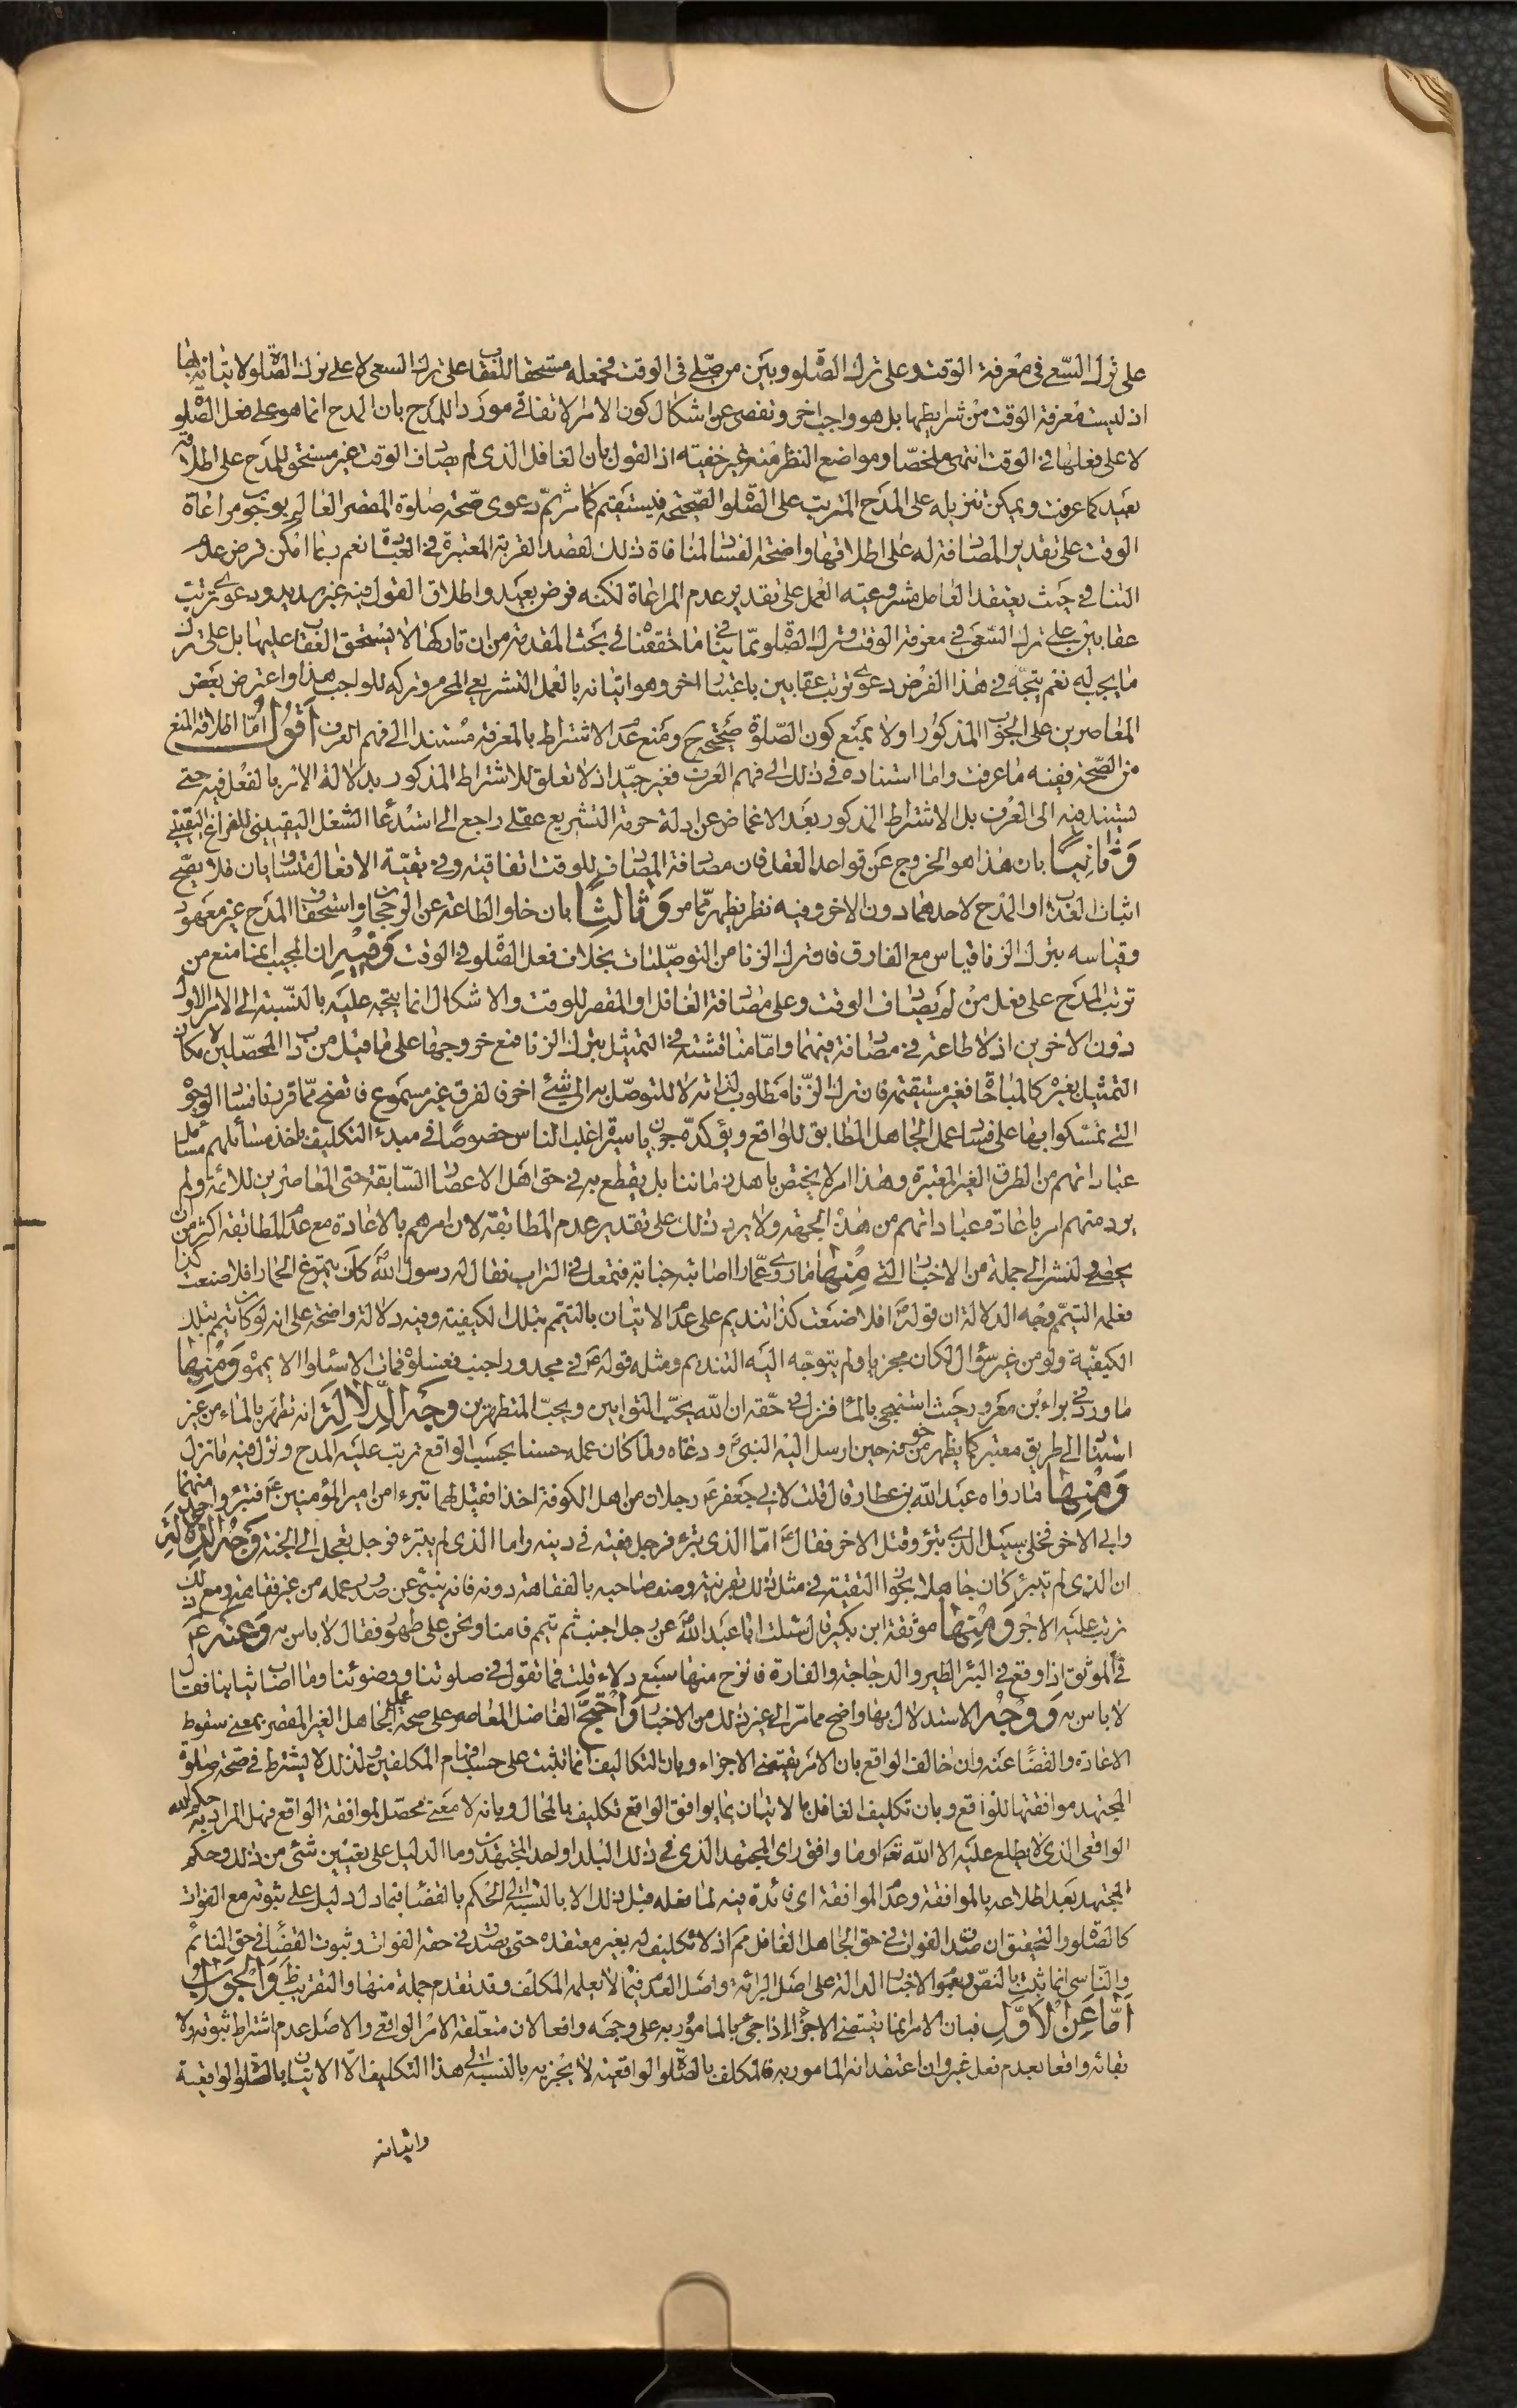 على ترك السعى فى معرفة الوقت وعلى ترك الصلو وبين من صلى فى الوقت فجعله مستحقا للعقاب على ترك السعى لا على ترك الصلو ولاتيانه بها
اذ ليست معرفة الوقت من شرايطها بل هو واجب اخر وتفصى عن اشكال كون الامر الاتفاقى موردا للمدح بان المدح انما هو على فعل الصلو
لا على فعلها فى الوقت انتهى ملخصا ومواضع النظر منه غير خفيته اذ القول بان الغافل الذى لم يصادف الوقت غير مستحق للمدح على اطلاقه
بعيد كما عرفت ويمكن تنزيله على المدح المترتب على الصلو الصحيحة فيستقيم كما مر ثم دعوى صحة صلوة المقصر العالم بوجوب مراعاة
الوقت على تقدير المصادفة له على اطلاقها واضحة الفساد لمنافاة ذلك لقصد القربة المعتبرة فى العبادة نعم ربما امكن فرض عدم
التنافى حيث يعتقد الفاعل مشروعيته العمل على تقدير عدم المراعاة لكنه فرض بعيد واطلاق القول فيه غير سديد ودعوى ترتب
عقابين على ترك السعى فى معرفة الوقت وترك الصلو مما ينافى ما حققنا فى بحث المقدمة من ان تاركها لا يستحق العقاب عليها بل على ترك
ما يجب له نعم يتجه فى هذا الفرض دعوى ترتب عقابين باعتبار اخر وهو اتيانه بالعمل التشريعى المحرم وتركه للواجب هذا واعترض بعض
المعاصرين على الجواب المذكور اولا بمنع كون الصلوة صحيح ومنع عدم الاشتراط بالمعرفة مستندا الى فهم العرف اقول اما اطلاقه المنع
من الصحة ففيه ما عرفت واما استناده فى ذلك الى فهم العرف فغير جيد اذ لا تعلق للاشتراط المذكور بدلالة الامر بالفعل فيه حتى
يستند فيه الى العرف بل الاشتراط المذكور بعد الاغماض عن ادلة حرمة التشريع عقلى راجع الى استدعاء الشغل اليقينى للفراغ اليقينى
وثانيا بان هذا هو الخروج عن قواعد العقل فان مصادفة المصادف للوقت اتفاقية وفى بقية الافعال متساويان فلا يصح
اثبات العذاب او المدح لاحدهما دون الاخر وفيه نظر يظهر مما مر وثالثا بان خلو الطاعة عن الرجحان واستحقاق المدح غير معهود
وقياسه بترك الزنا قياس مع الفارق فان ترك الزنا من التوصليات بخلاف فعل الصلو فى الوقت وفيه ان المجيب انما منع من
ترتب المدح على فعل من لم يصادف الوقت وعلى مصادفة الغافل او المقصر للوقت والاشكال انما يتجه عليه بالنسبة الى الامر الاول
دون الاخرين اذ لا طاعة فى مصادفة فيهما واما مناقشته فى التمثيل بترك الزنا فمع خروجها على ما قيل من داب المحصلين لامكان
التمثيل بغيره كالمباحات فغير مستقيمة فان ترك الزنا مطلوب لذاته لا للتوصل به الى شئ اخر فالفرق غير مسموع فاتضح مما قررنا فساد الوجوه
التى تمسكوا بها على فساد عمل الجاهل المطابق للواقع ويؤكده جريان سيرة اغلب الناس خصوصا فى مبدء التكليف باخذ مسائلهم مسائل
عباداتهم من الطرق الغير المعتبرة وهذا امر لا يختص باهل زماننا بل يقطع به فى حق اهل الاعصار السابقة حتى المعاصرين للائمة ولم
يرد منهم امر باعادة عباداتهم من هذه الجهة ولا يرد ذلك على تقدير عدم المطابقة لان امرهم بالاعادة مع عدم المطابقة اكثر من ان
يحصى ولنشر الى جملة من الاخبار التى منها ما روى عمارا اصابته جنابة فتمعك فى التراب فقال له رسول الله كان يتمرغ الحمار افلا صنعت كذا
فعلمه التيمم وجه الدلالة ان قوله افلا صنعت كذا تنديم على عدم الاتيان بالتيمم بتلك الكيفية وفيه دلالة واضحة على انه لو كان تيمم بتلك
الكيفية ولو من غير سؤال لكان مجزيا ولم يتوجه اليه التنديم ومثله قوله فى مجدور اجنب فغسلوه فمات الا سئلوا الا يمموه ومنها
ما ورد فى براء بن معرور حيث استنجى بالماء فنزل فى حقه ان الله يحب التوابين ويحب المتطهرين وجه الدلالة انه تطهر بالماء من غير
استناد الى طريق معتبر كما يظهر من خوفه حين ارسل اليه النبى ودعاه ولما كان عمله حسنا بحسب الواقع ترتب عليه المدح ونزل فيه ما نزل
ومنها ما رواه عبد الله بن عطا قال قلت لابى جعفر رجلان من اهل الكوفة اخذا فقيل لهما تبرءا من امير المؤمنين فتبرء واحد منهما
وابى الاخر فخلى سبيل الذى تبرء وقتل الاخر فقال اما الذى تبرء فرجل فقيه فى دينه واما الذى لم يتبرء فرجل تعجل الى الجنة وجه الدلالة
ان الذى لم يتبرء كان جاهلا بجواز التقية فى مثل ذلك بقرينة وصف صاحبه بالفقاهة دونه فانه ينبئ عن صدور عمله من غير فقاهة ومع ذلك
ترتب عليه الاجر ومنها موثقة ابن بكير قال سئلت ابا عبد الله عن رجل اجنب ثم تيمم فامنا ونحن على طهور فقال لا باس به وعنه
فى الموثق اذا وقع فى البئر الطير والدجاجة والفارة فانزح منها سبع دلاء قلت فما تقول فى صلوتنا ووضوئنا وما اصاب ثيابنا فقال
لا باس به ووجه الاستدلال بها واضح مما مر الى غير ذلك من الاخبار واحتج الفاضل المعاصر على صحة عمل الجاهل الغير المقصر بمعنى سقوط
الاعادة والقضاء عنه وان خالف الواقع بان الامر يقتضى الاجزاء وبان التكاليف انما تثبت على حسب افهام المكلفين ولذلك لا يشترط فى صحة صلوة
المجتهد موافقتها للواقع وبان تكليف الغافل بالاتيان بما يوافق الواقع تكليف بالمحال وبانه لا معنى محصل لموافقة الواقع فهل المراد به حكم الله
الواقعى الذى لا يطلع عليه الا الله تعالى او ما وافق راى المجتهد الذى فى ذلك البلد او احد المجتهدين وما الدليل على تعيين شئ من ذلك وحكم
المجتهد بعد اطلاعه بالموافقة وعدم الموافقة اى فائدة فيه لما فعله قبل ذلك الا بالنسبة الى الحكم بالقضاء فيما دل دليل على ثبوته مع الفوات
كالصلو والتحقيق ان صدق الفوات فى حق الجاهل الغافل مم اذ لا تكليف له بغير معتقده حتى يصدق فى حقه الفوات وثبوت القضاء فى حق النائم
والناسى انما ثبت بالنص وبعموم الاخبار الدالة على اصل البرائة واصل العدم فيما لا يعلمه المكلف وقد تقدم جملة منها والتقريب ظ والجواب
اما عن الاول فبان الامر انما يقتضى الاجزاء اذا جئ بالمامور به على وجهه واقعا لان متعلقه الامر الواقعى والاصل عدم اشتراط ثبوته ولا
بقائه واقعا بعدم فعل غيره وان اعتقد انه المامور به فالمكلف بالصلو الواقعية لا يجزيه بالنسبة الى هذا التكليف الا الاتيان بالصلو الواقعية
واتيانه